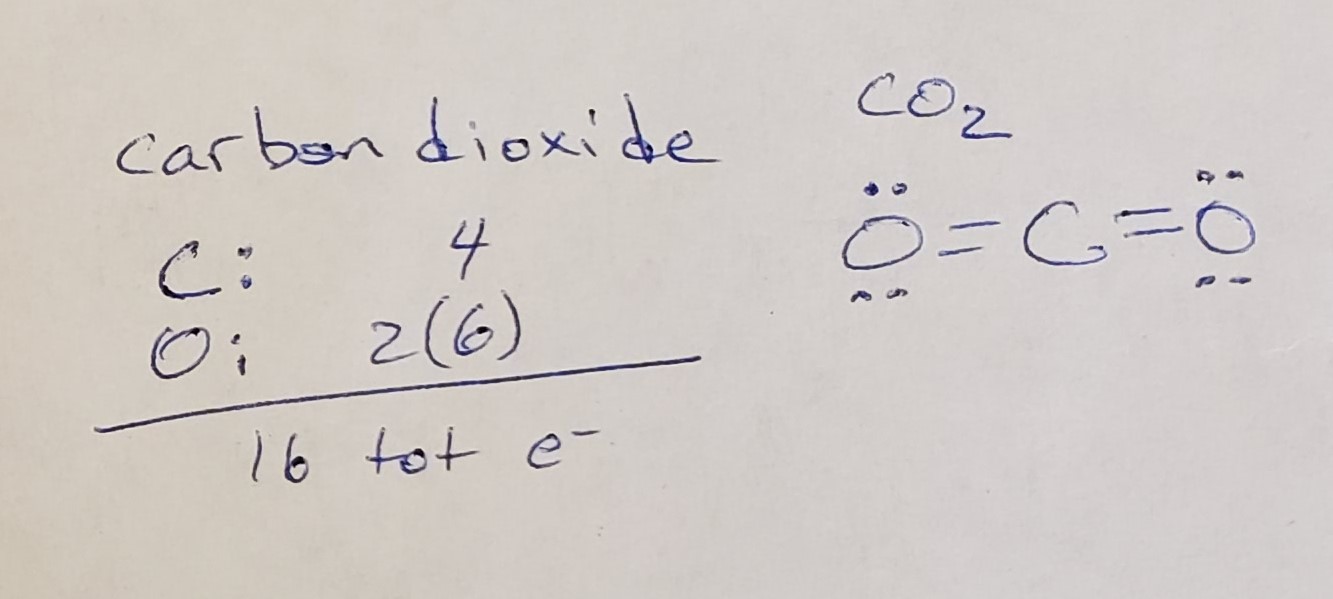 carbon dioxide
C: 4
O: 2(6)
16 tot e⁻
CO₂
O=C=O